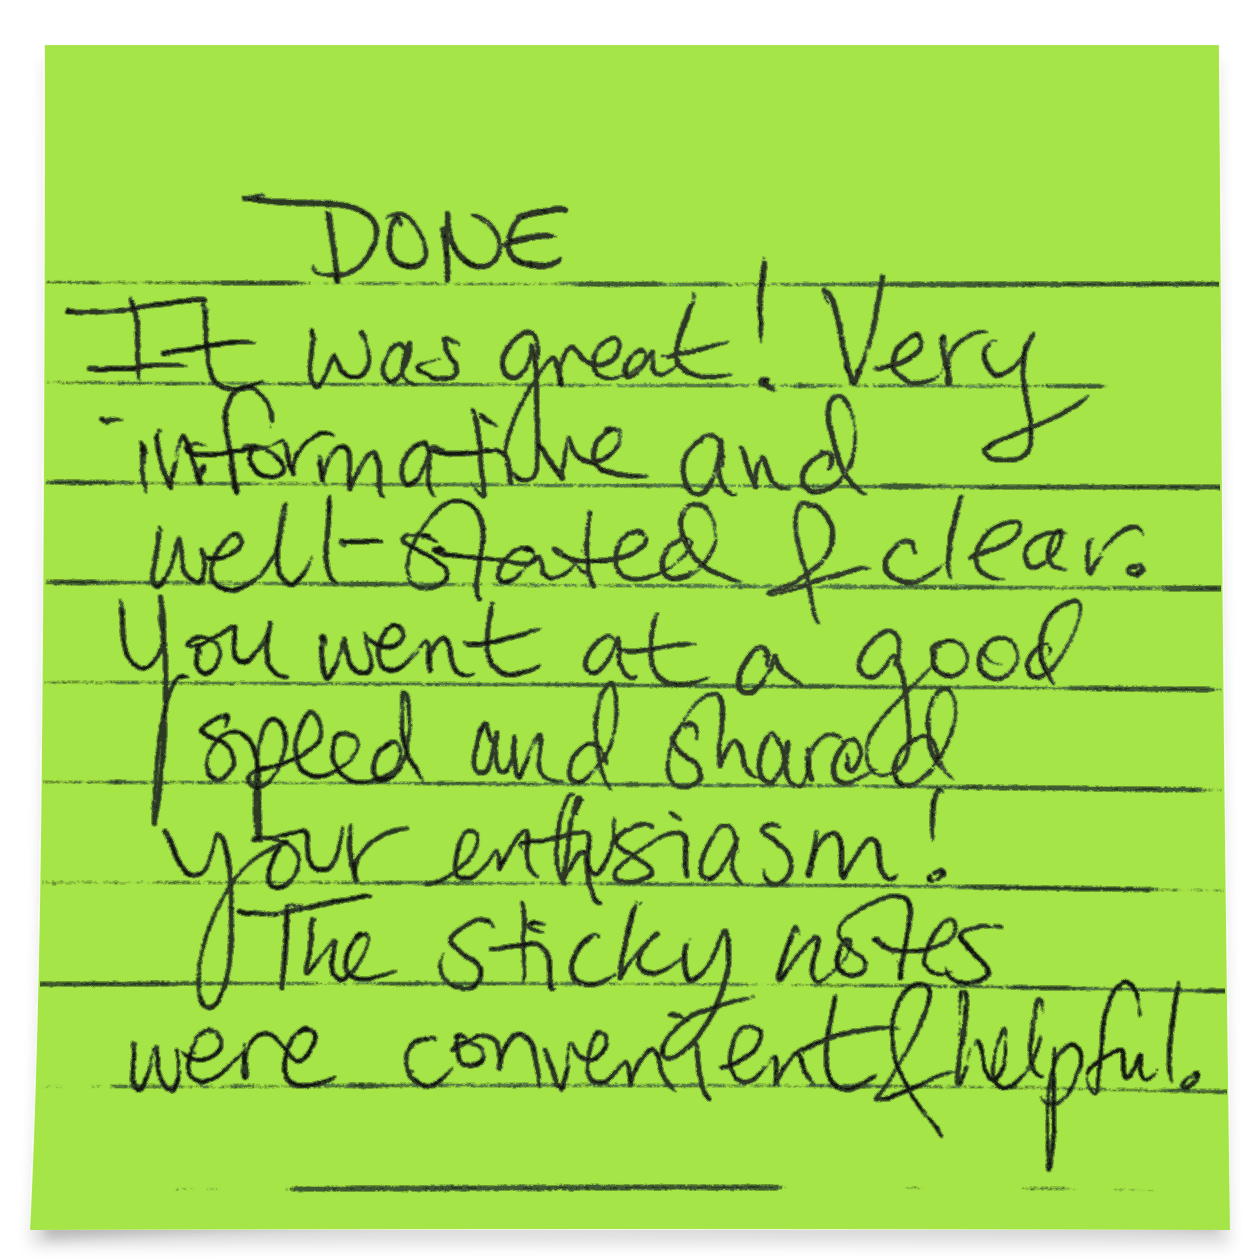 DONE
It was great! Very
informative and
well-stated & clear.
You went at a good
speed and shared
your enthusiasm!
The sticky notes
were convenient & helpful.